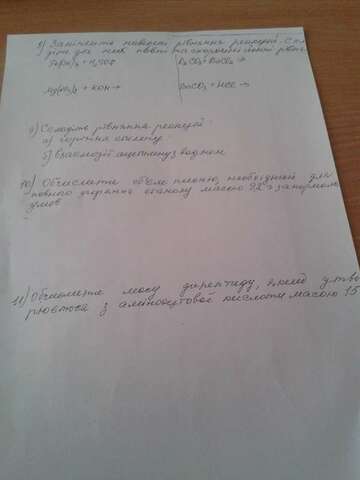 8) Закінчіть наведені рівняння реакцій. Скла
діть для них повні та скорочені йонні рівн.
+ H2SO4
K2CO3 + BaCl2 →
+ KOH →
BaCO3 + HCl →
9) Складіть рівняння реакцій:
а) горіння етилену
б) взаємодії ацетилену з воднем
10) Обчисліть об'єм кисню, необхідний для
повного згорання етанолу масою 92 г за нормаль
умов
11) Обчисліть масу дипептиду, який утво
рюється з амінооцтової кислоти масою 15